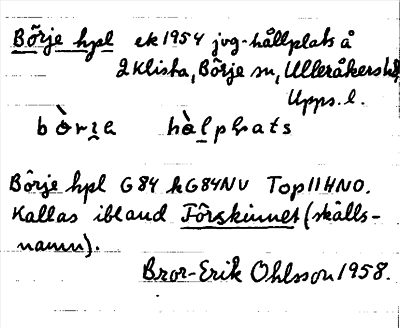 Börje hpl ek 1954 jvg-hållplats å
2 Klista, Börje sn, Ulleråkers hd,
Upps. l.
bò̀rza hàlplats
Börje hpl G84 kG84NV Top11HNO.
Kallas ibland Fårskinnet (skälls-
namn).
Bror-Erik Ohlsson 1958.